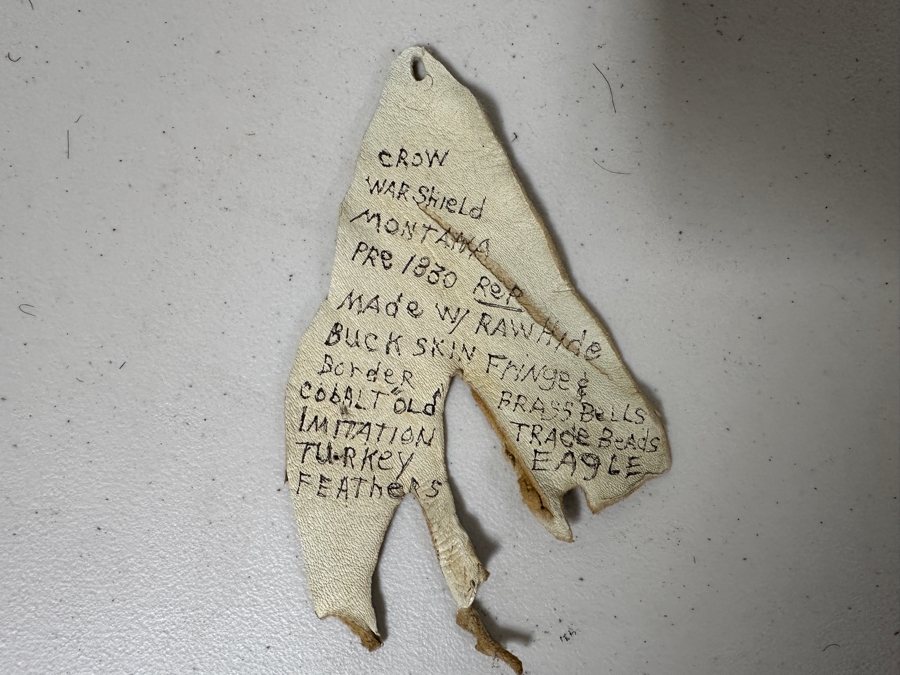 CROW
WAR Shield
MONTANA
PRe 1830 ReP
MAde W/ RAWHide
BUCKSKIN FriNge &
Border BRASS BellS
CobALT "OLd" TRAde BeAds
IMITATION EAgLE
TURKey
FEATheRS